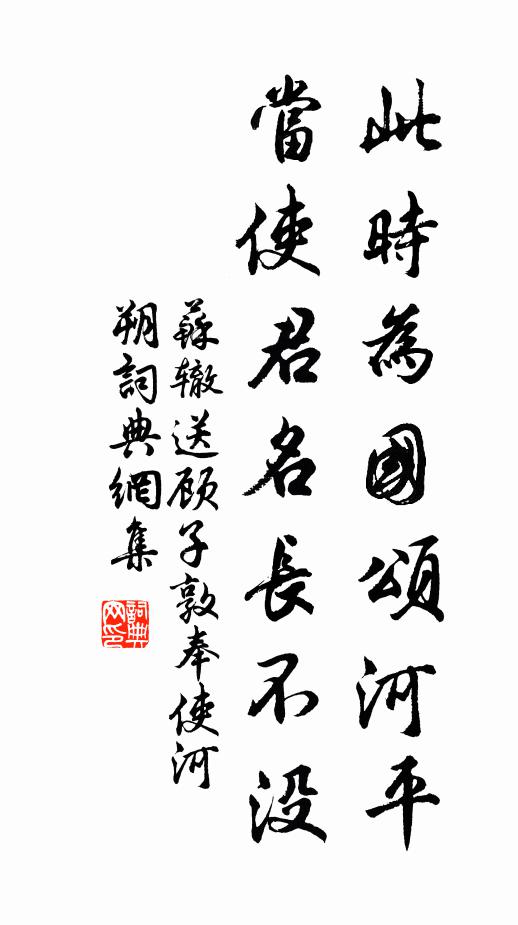 此時為國頌河平
當使君名長不没
蘇辙送顾子敦奉使河
朔詞典網集
詞典网印